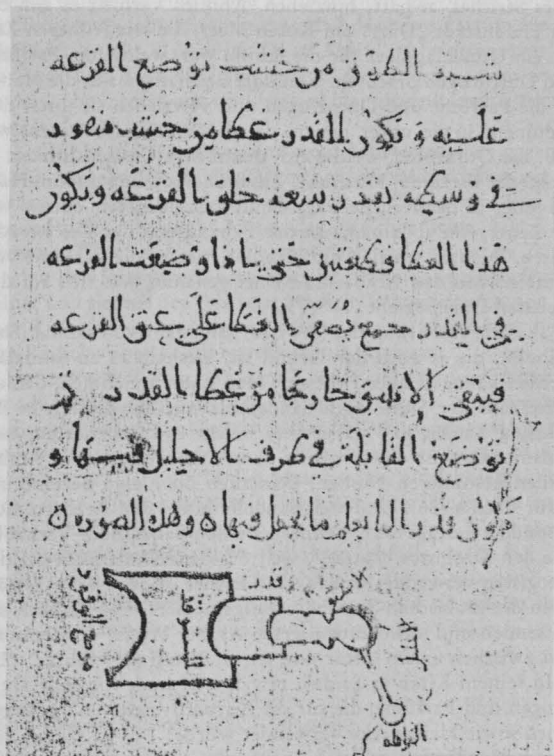 شبيه الطوق من خشب توضع القرعه
عليه وتكون للقدر غطا من خشب
في وسطه بقدر سعه حلق القرعه وتكون
هذا الغطا حتى اذا وضعت القرعه
في القدر جمع نصفي الغطا على عنق القرعه
فيبقى الانبيق خارجا من غطا القدر ثم
توضع القابلة في طرف الاحليل و
قدر ما يحمل فيها ه وهذه الصوره ه
قدر
موضع الوقود
القابله